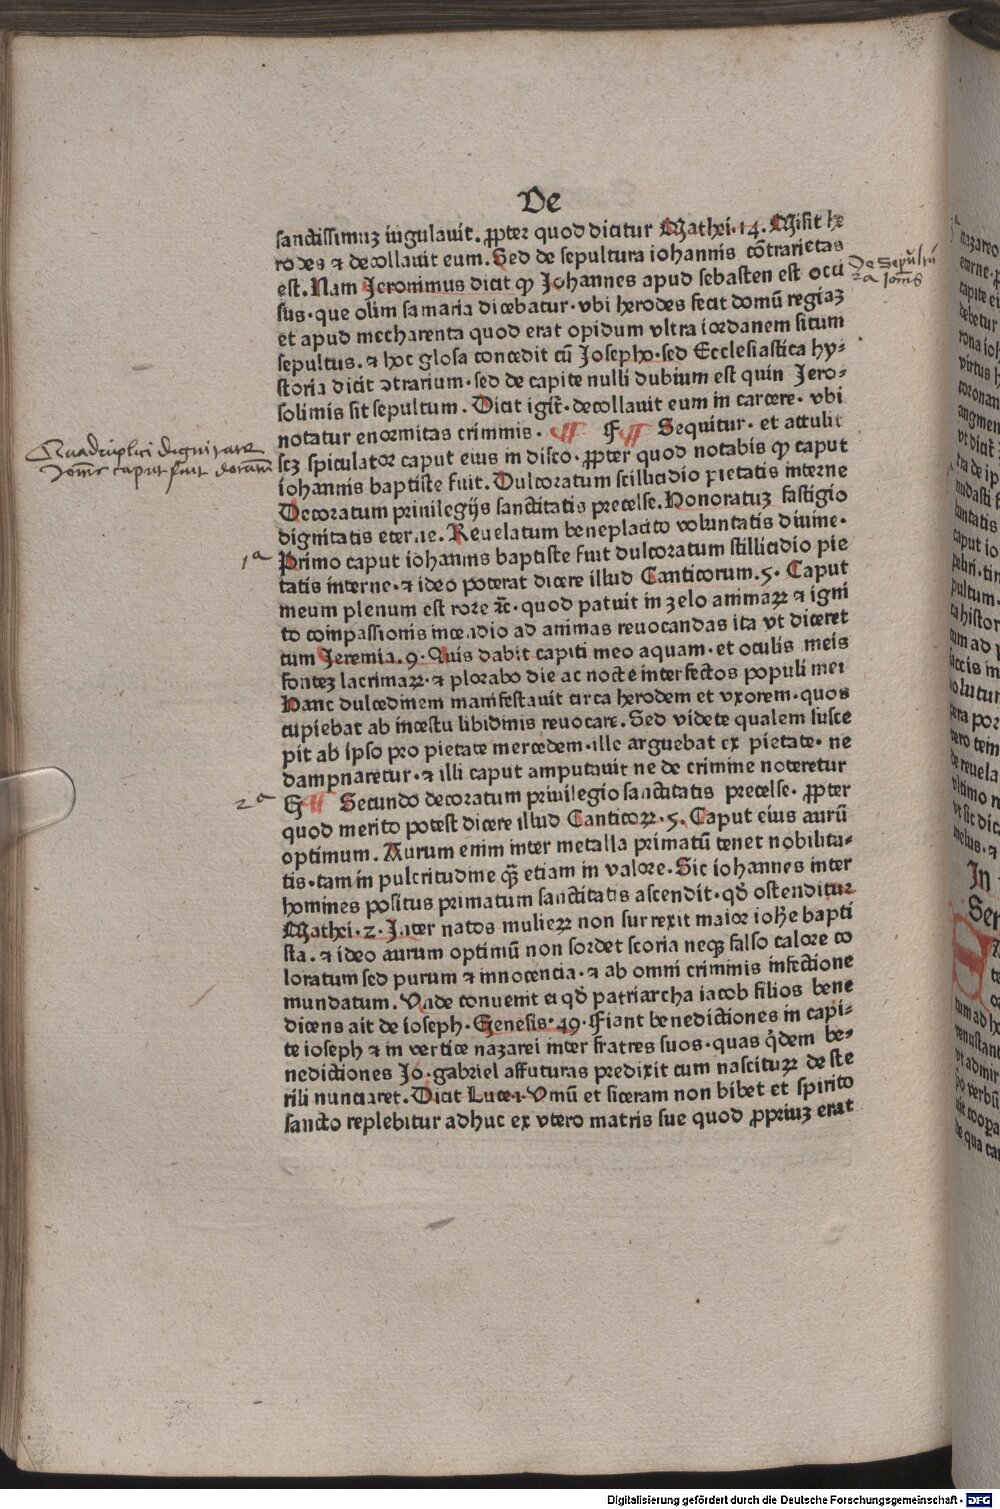 De
sanctissimuz iugulauit. ꝓpter quod dicitur Mathei.14. Misit he
rodes ⁊ decollauit eum. Sed de sepultura iohannis cõtrarietas
est. Nam Jeronimus dicit ꝙ Johannes apud sebasten est occi
sus.que olim samaria dicebatur.vbi herodes fecit domũ regiaz
et apud mecharenta quod erat opidum vltra iordanem situm
sepultus.⁊ hoc glosa concedit cũ Josepho.sed Ecclesiastica hy⸗
storia dicit ↄtrarium.sed de capite nulli dubium est quin Jero⸗
solimis sit sepultum. Dicit igit̃.decollauit eum in carcere.vbi
notatur enormitas criminis. ¶ F ¶ Sequitur.et attulit
scz spiculator caput eius in disco.ꝓpter quod notabis ꝙ caput
iohannis baptiste fuit. Dulcoratum scillicidio pietatis interne
Decoratum priuilegijs sanctitatis precelse. Honoratuz fastigio
dignitatis eterne. Reuelatum beneplacito voluntatis diuine.
Primo caput iohannis baptiste fuit dulcoratum stillicidio pie
tatis interne.⁊ ideo poterat dicere illud Canticorum.5. Caput
meum plenum est rore ⁊c̃.quod patuit in zelo animaꝝ ⁊ igni
to compassionis incendio ad animas reuocandas ita vt diceret
cum Jeremia.9. Quis dabit capiti meo aquam.et oculis meis
fontez lacrimaꝝ.⁊ plorabo die ac nocte interfectos populi mei
Hanc dulcedinem manifestauit circa herodem et vxorem.quos
cupiebat ab incestu libidinis reuocare. Sed videte qualem susce
pit ab ipso pro pietate mercedem.ille arguebat ex pietate.ne
dampnaretur.⁊ illi caput amputauit ne de crimine noteretur
G ¶ Secundo decoratum priuilegio sanctitatis precelse.ꝓpter
quod merito potest dicere illud Canticoꝝ.5. Caput eius aurũ
optimum. Aurum enim inter metalla primatũ tenet nobilita⸗
tis.tam in pulcritudine qȝ̃ etiam in valore. Sic iohannes inter
homines positus primatum sanctitatis ascendit.qð ostenditur
Mathei.2. Inter natos mulieꝝ non surrexit maior ioh̃e bapti
sta.⁊ ideo aurum optimũ non sordet scoria neqȝ falso calore co
loratum sed purum ⁊ innocencia.⁊ ab omni criminis infectione
mundatum. Vnde conuenit ei qð patriarcha iacob filios bene
dicens ait de ioseph. Genesis.49. Fiant benedictiones in capi⸗
te ioseph ⁊ in vertice nazarei inter fratres suos.quas q̃dem be⸗
nedictiones Jo.gabriel affuturas predixit cum nasciturꝝ de ste
rili nunciaret. Dicit Luce.1. Vinũ et siceram non bibet et spirito
sancto replebitur adhuc ex vtero matris sue quod ꝓpriuz erat
De sepultu
ra Joan̄is
Quadruplici dignitate
Joan̄is caput fuit doratum
1ª
2ª
Digitalisierung gefördert durch die Deutsche Forschungsgemeinschaft - DFG